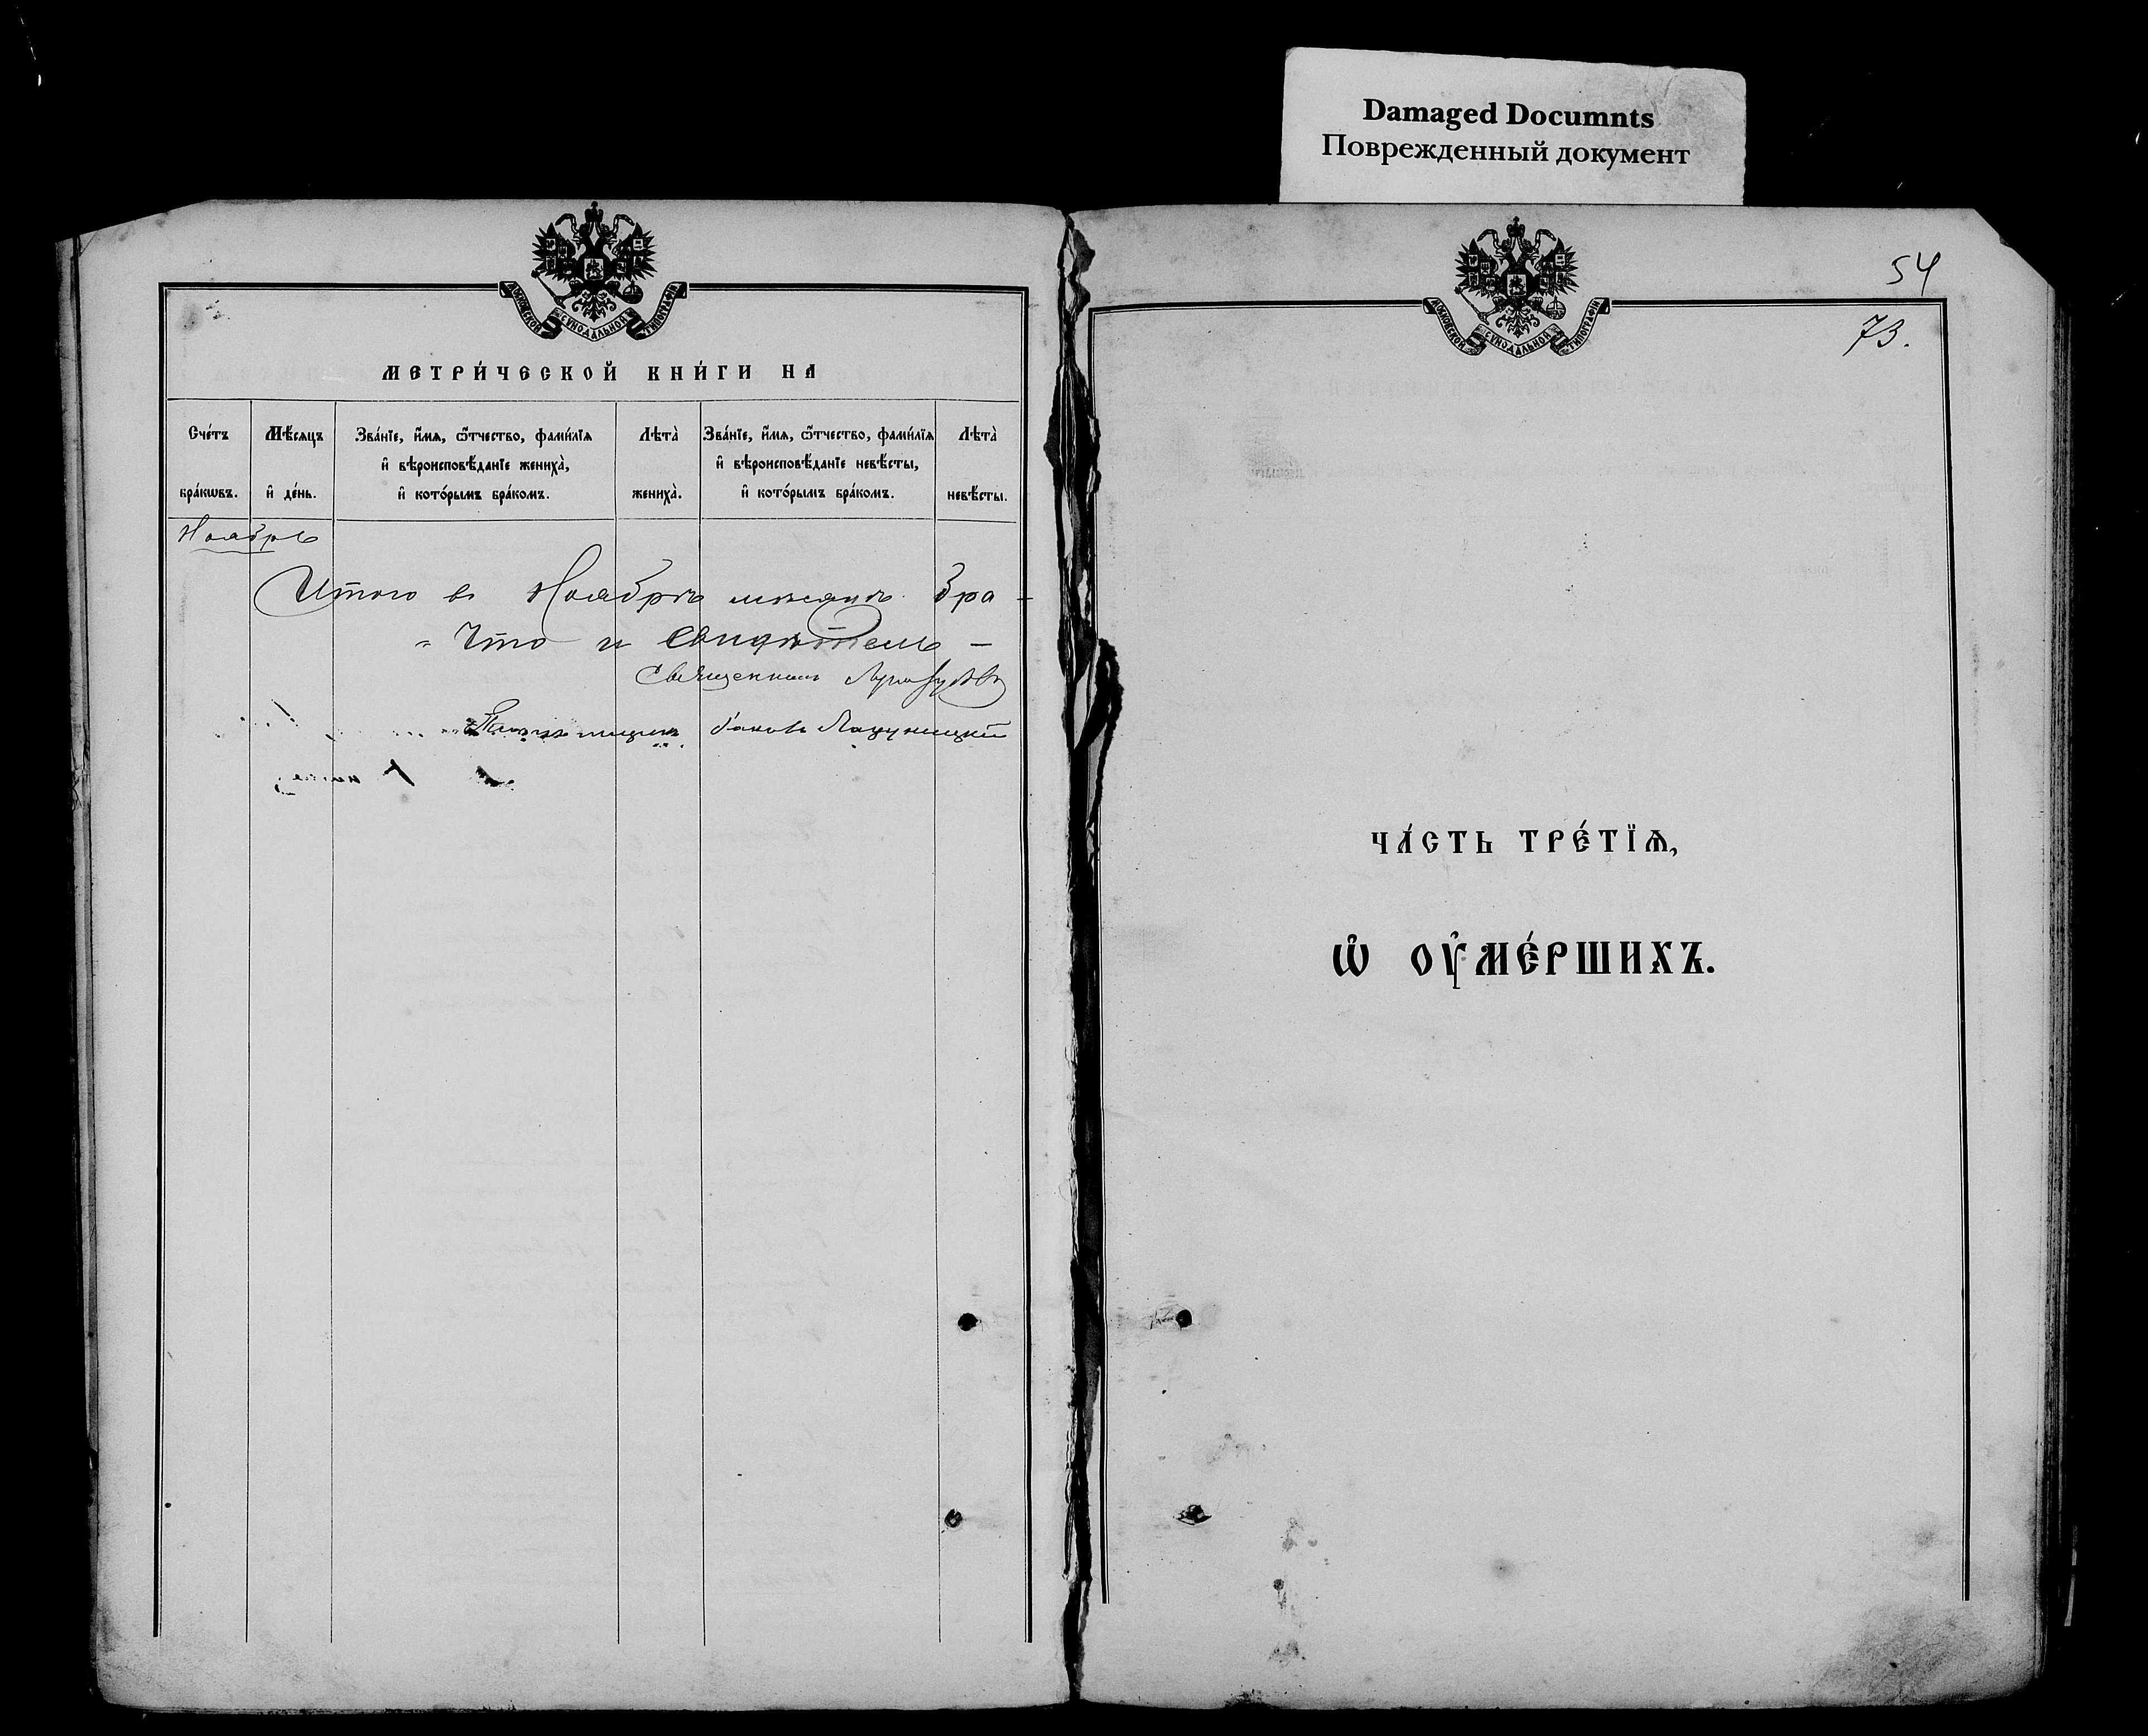 Damaged Documnts
Поврежденный документ
МОСКОВСКОЙ СѴНОДАЛЬНОЙ ТИПОГРАФІИ
МЕТРИ́ЧЕСКОЙ КНИ́ГИ НА
Сче́тъ бра́кѡвъ.
Мѣ́сяцъ и҆ де́нь.
Зва́нїе, и҆́мѧ, ѻ҆́тчество, фами́лїѧ
и҆ вѣроисповѣ́данїе жениха̀,
и҆ кото́рымъ бра́комъ.
Лѣта̀ жениха̀.
Зва́нїе, и҆́мѧ, ѻ҆́тчество, фами́лїѧ
и҆ вѣроисповѣ́данїе невѣ́сты,
и҆ кото́рымъ бра́комъ.
Лѣта̀ невѣ́сты.
Ноябрь
Итого в Ноябрѣ мѣсяцѣ бра
Что и свидѣтель –
Священникъ
МОСКОВСКОЙ СѴНОДАЛЬНОЙ ТИПОГРАФІИ
54
73.
ЧА́СТЬ ТРЕ́ТЇѦ,
Ѡ҆ ОУ҆МЕ́РШИХЪ.